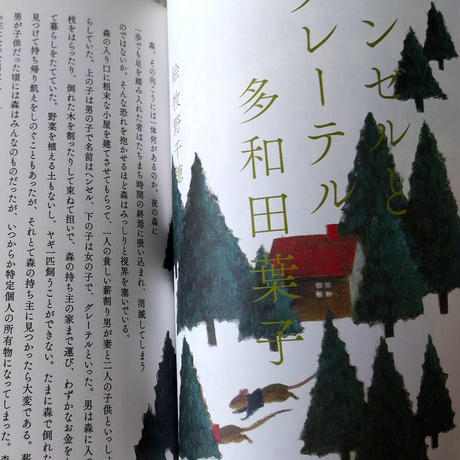 ンゼルと
グレーテル
多和田葉子
絵 牧野千穂
森、その向こうには一体何があるのか。夜の森に
一歩でも足を踏み入れた者はたちまち時間の終焉に吸い込まれ、消滅してしまう
のではないか。そんな恐れを抱かせるほど森はみっしりと視界を塞いでいる。
森の入り口に粗末な小屋を建てさせてもらって、一人の貧しい薪割り男が妻と二人の子供といっし
らしていた。上の子は男の子で名前はヘンゼル、下の子は女の子で、グレーテルといった。男は森に入
枝をはらったり、倒れた木を割ったりして束ねて担いで、森の持ち主の家まで運び、わずかなお金を
て暮らしをたてていた。野菜を植える土もないし、ヤギ一匹飼うことができない。たまに森で倒れ
見つけて持ち帰り飢えをしのぐこともあったが、それとて森の持ち主に見つかったら大変である。薪
男が子供だった頃には森はみんなのものだったが、いつからか特定個人の所有物になってしまった。